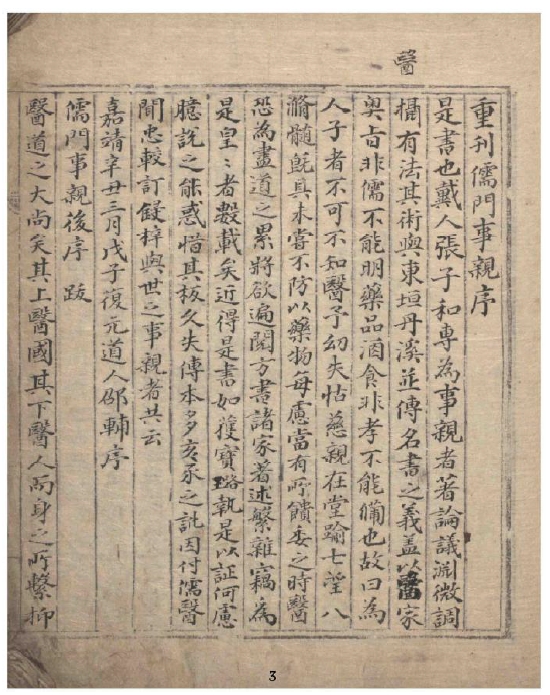 醫
重刊儒門事親序
是書也戴人張子和專為事親者著論議淵微調
攝有法其術與東垣丹溪並傳名書之義盖以醫家
奧旨非儒不能明藥品酒食非孝不能備也故曰為
人子者不可不知醫予幼失怙慈親在堂踰七望八
滫髓旣具未嘗不防以藥物每慮當有所饋委之時醫
恐為盡道之累將欲遍閱方書諸家著述繁雜竊為
是皇〻者數載矣近得是書如獲寶璐執是以証何慮
臆說之能惑惜其板久失傳本多亥豕之訛因付儒醫
聞忠較訂鋟梓與世之事親者共云
嘉靖辛丑三月戊子復元道人邵輔序
儒門事親後序 跋
醫道之大尚矣其上醫國其下醫人而身之所繫抑
3